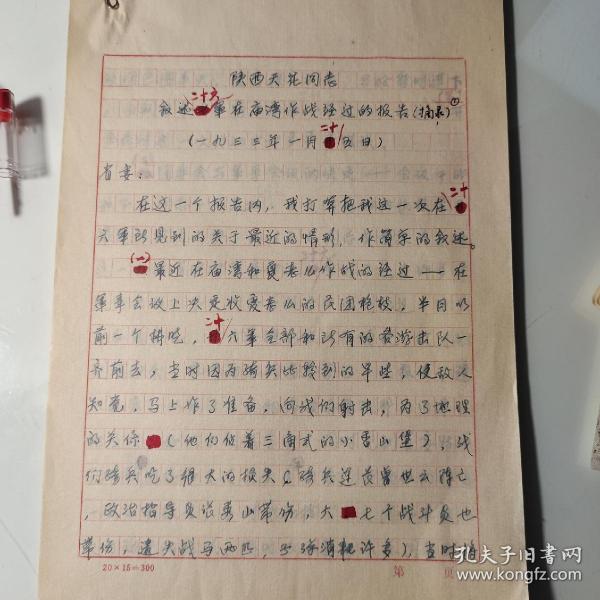 陕西天花同志
叙述二十六军在庙湾作战经过的报告(摘录)①
(一九三三年一月二十五日)
省委:
在这一个报告内,我打算把我这一次在二十
六军所见到的关于最近的情形,作简单的叙述。
(一)最近在庙湾和夏老么作战的经过——在
军事会议上决定收夏老么的民团枪枝,半月以
前一个拂晓,二十六军全部和所有的各游击队一
齐前去,当时因为骑兵比较到的早些,使敌人
知觉,马上作了准备,向我们射击,为了地理
的关系(他们占着三角式的小香山堡),我
们骑兵吃了很大的损失(骑兵连长曾世云阵亡
,政治指导员张秀山带伤,六七个战斗员也
带伤,遗失战马两匹,子弹消耗许多),当时
20×15=300
第 页
孔夫子旧书网
kongfz.com